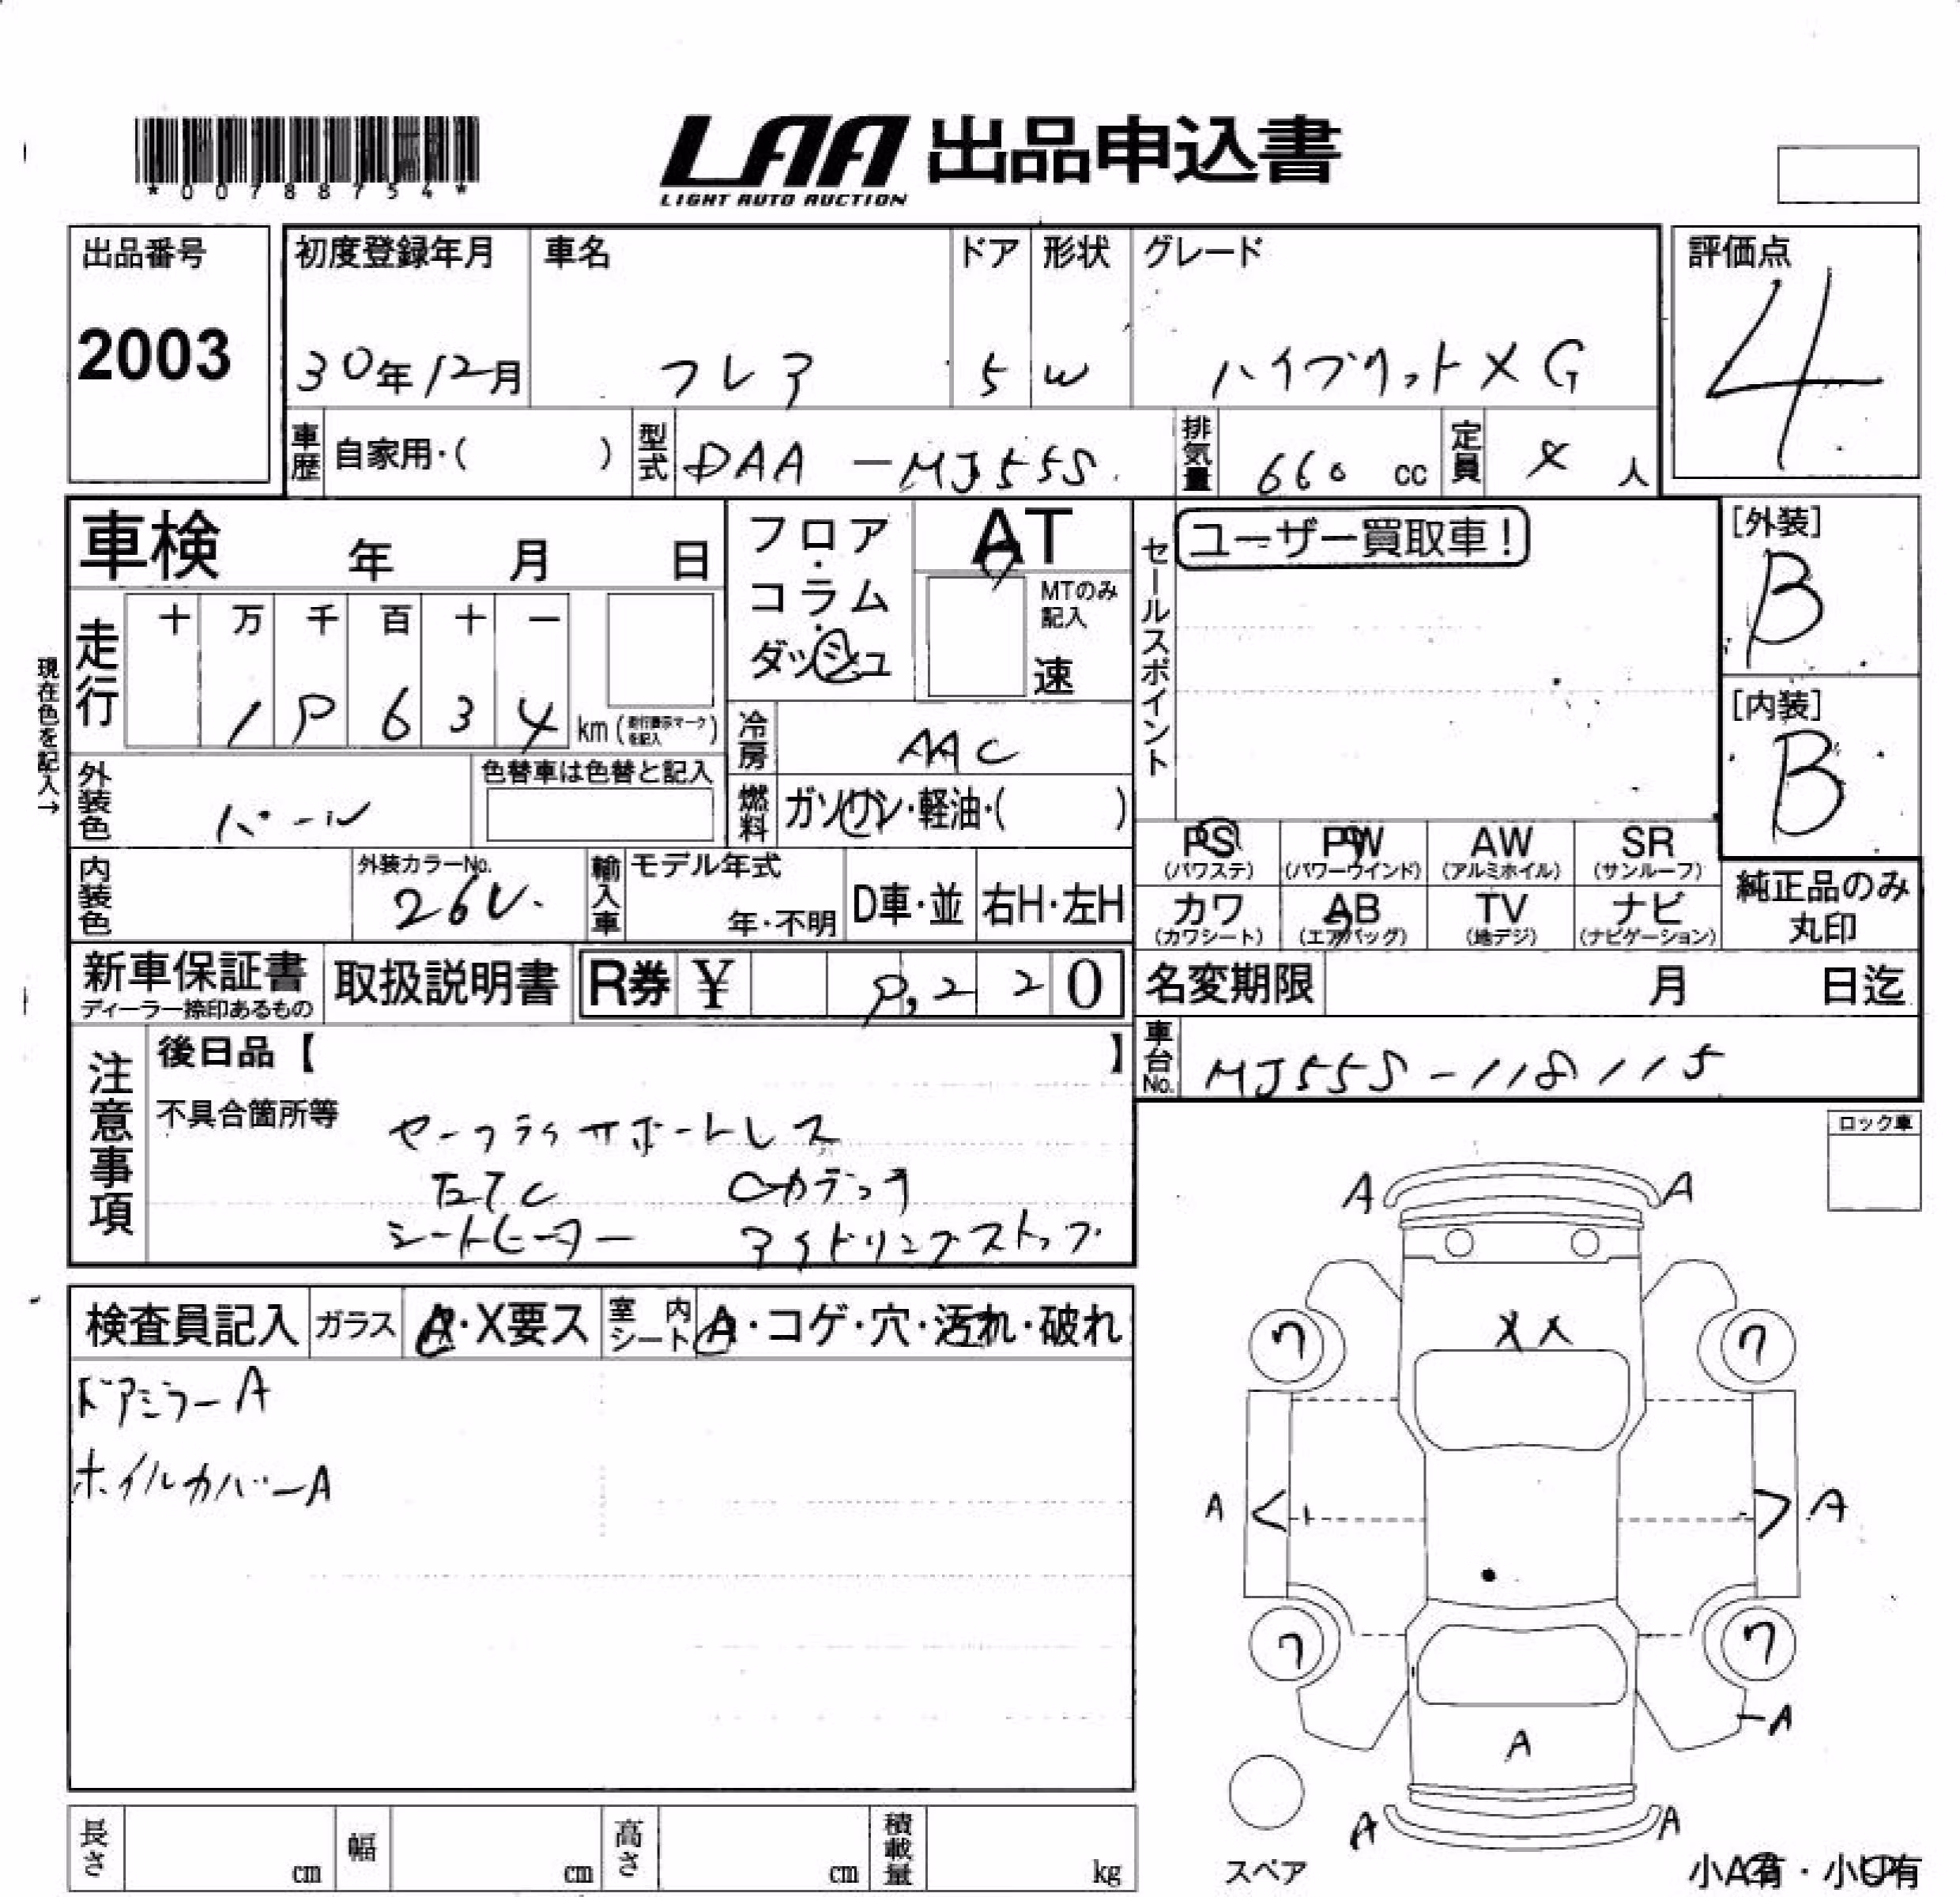 *00788754*
LAA 出品申込書
LIGHT AUTO AUCTION
出品番号 2003
初度登録年月 30年12月
車名 フレア
ドア 5
形状 W
グレード ハイブリットXG
評価点 4
車歴 自家用・( )
型式 DAA-MJ55S
排気量 660 cc
定員 4 人
車検 年 月 日
フロア・コラム・ダッシュ
AT
MTのみ記入
速
セールスポイント
ユーザー買取車！
[外装] B
[内装] B
現在色を記入→
走行 十 万 千 百 十 一
19634 km (走行表示マークを記入)
冷房 AAC
外装色 パール
色替車は色替と記入
燃料 ガソリン・軽油・( )
PS (パワステ)
PW (パワーウインド)
AW (アルミホイル)
SR (サンルーフ)
カワ (カワシート)
AB (エアバッグ)
TV (地デジ)
ナビ (ナビゲーション)
純正品のみ丸印
内装色
外装カラーNo. 26U
輸入車 モデル年式 年・不明
D車・並
右H・左H
新車保証書
ディーラー捺印あるもの
取扱説明書
R券 ¥ 9,220
名変期限 月 日迄
車台No. MJ55S-118115
注意事項
後日品【 】
不具合箇所等
セーフティサポートレス
ETC CDデッキ
シートヒーター アイドリングストップ
ロック車
検査員記入
ガラス A・X要ス
室内シート A・コゲ・穴・汚れ・破れ
ドアミラーA
ホイルカバーA
A A
XX
ワ ワ
A A
ワ ワ
A
A
A A
スペア
小A有・小U有
長さ cm
幅 cm
高さ cm
積載量 kg